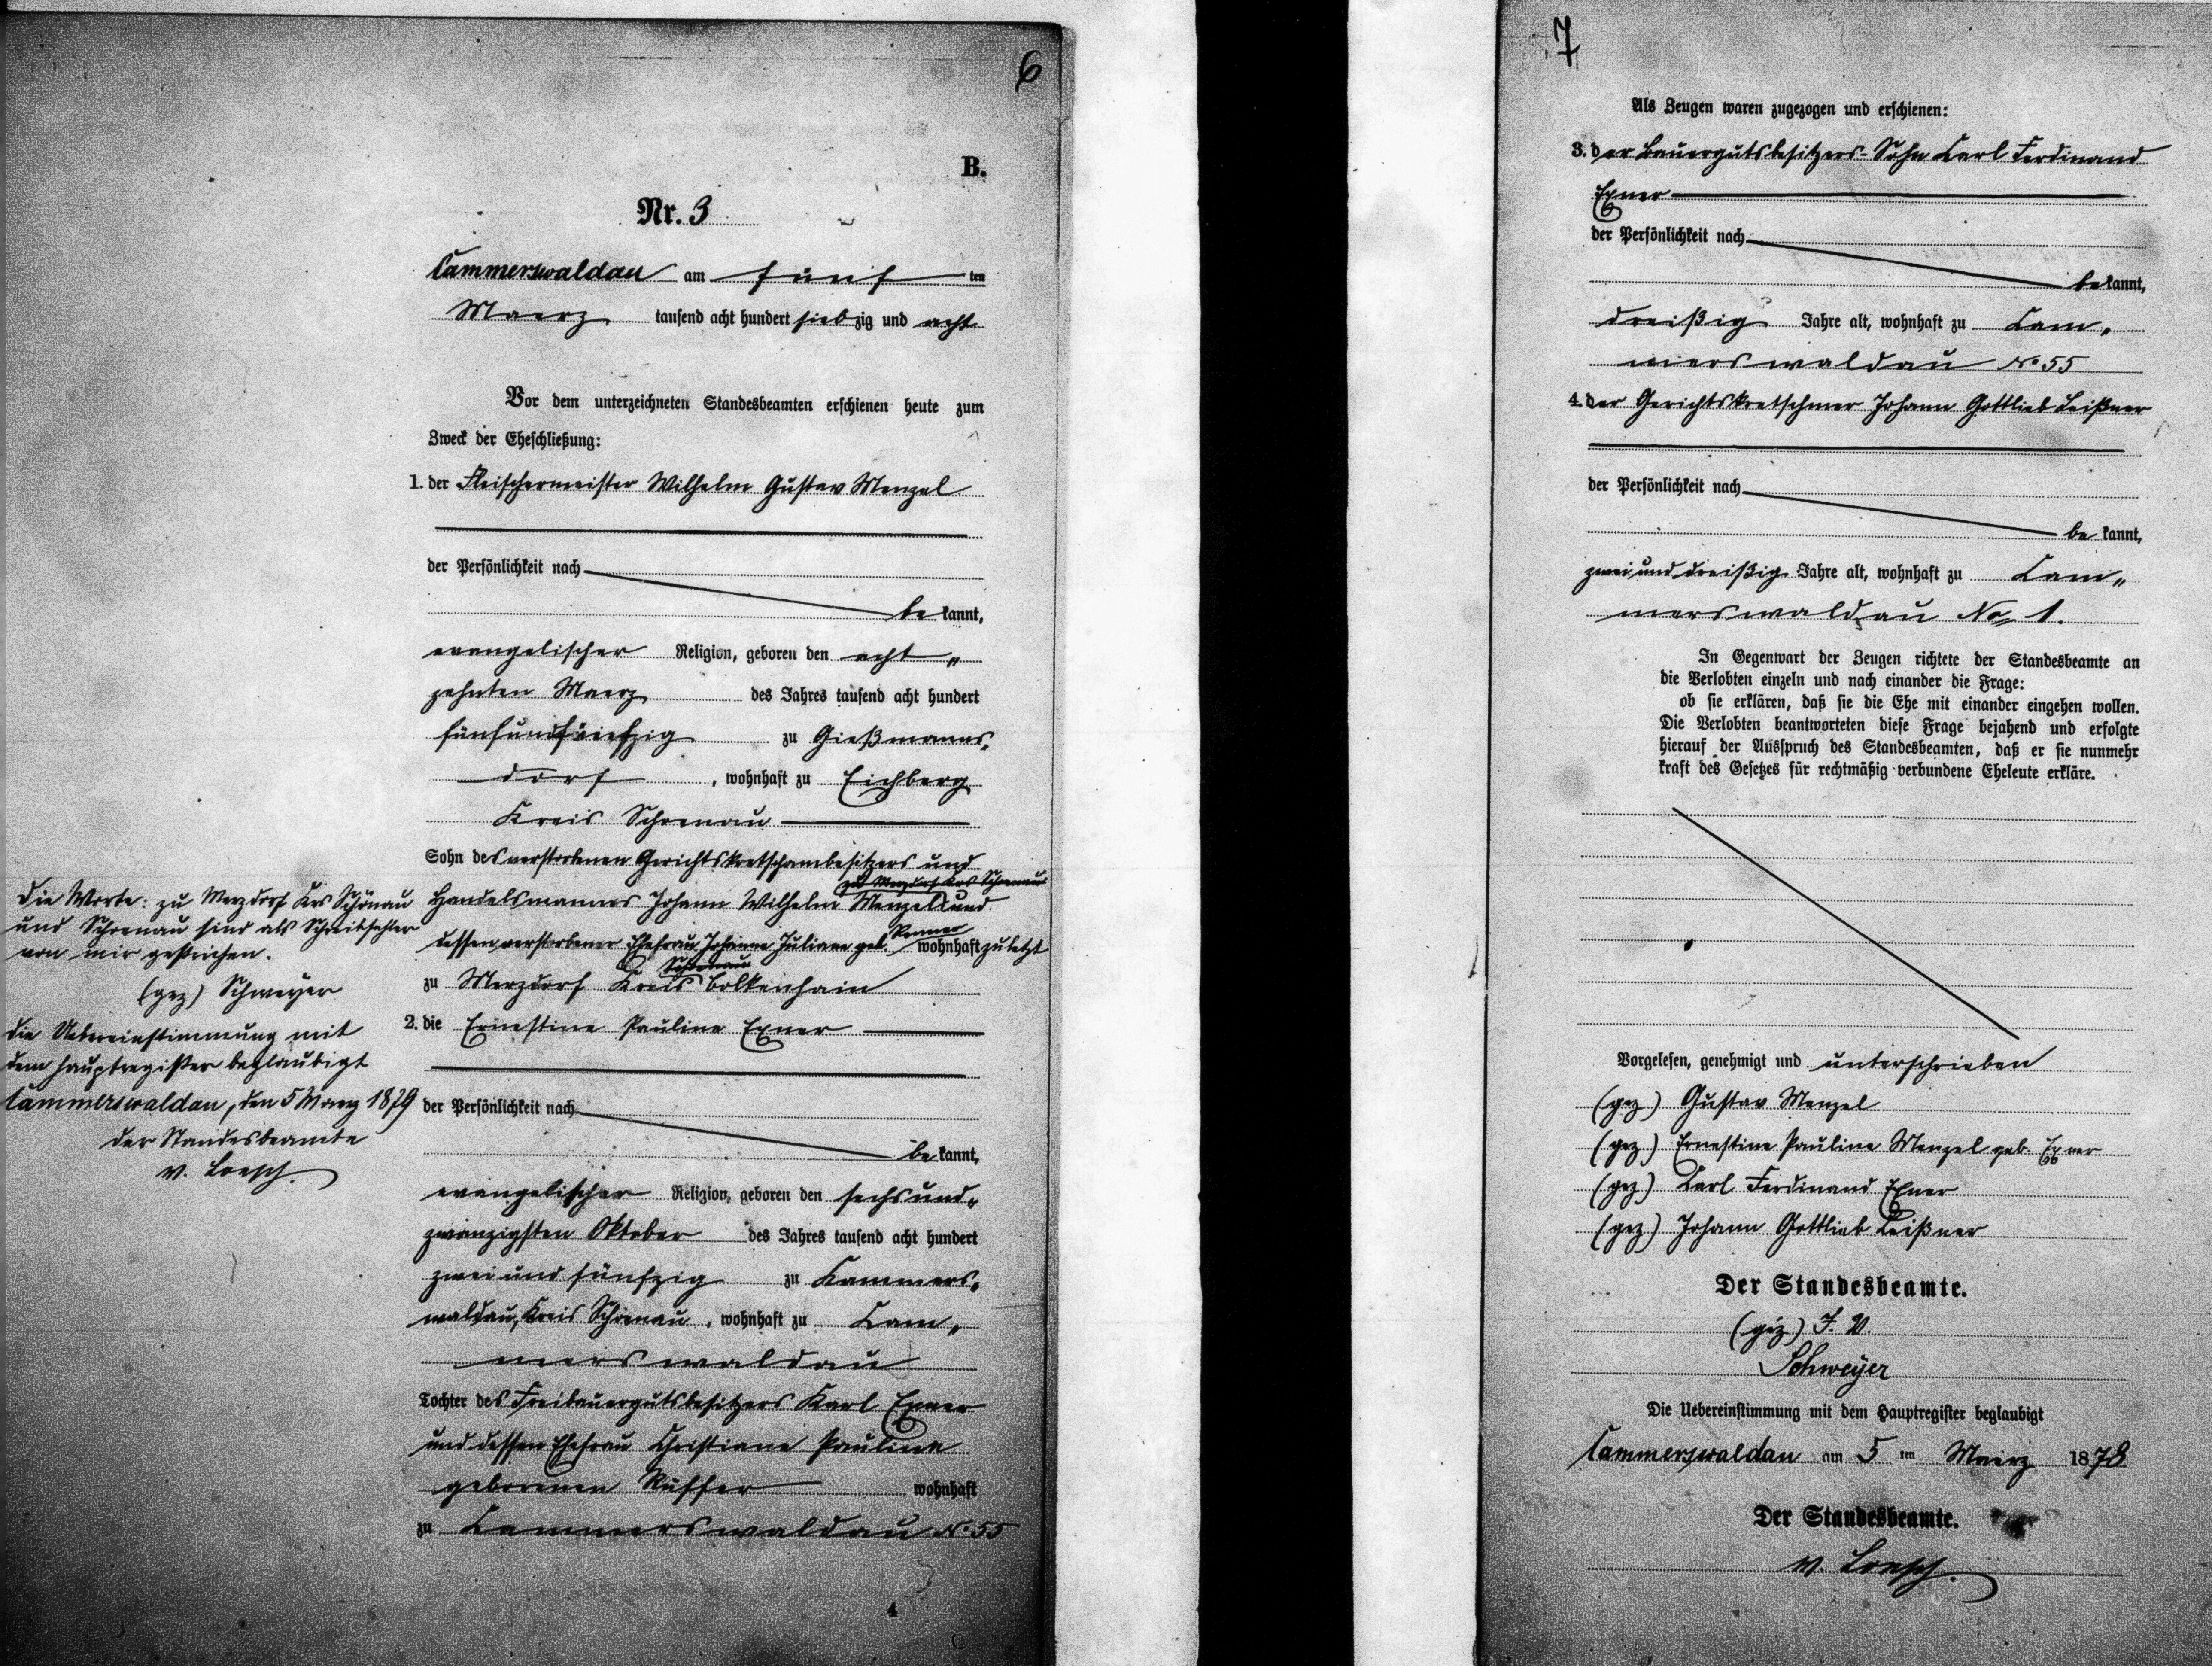 6
B.
Nr. 3
Cammerswaldau am fünf ten
Maerz tausend acht hundert siebzig und acht
Vor dem unterzeichneten Standesbeamten erschienen heute zum
Zweck der Eheschließung:
1. der Fleischermeister Wilhelm Gustav Menzel
der Persönlichkeit nach
be kannt,
evangelischer Religion, geboren den acht„
zehnten Maerz des Jahres tausend acht hundert
fünfundfünfzig zu Gießmanns„
dorf, wohnhaft zu Eichberg
Kreis Schoenau
Sohn des verstorbenen Gerichtskretschambesitzers und
zu Merzdorf Krs Schoenau
Handelsmannes Johann Wilhelm Menzel und
Renner
dessen verstorbener Ehefrau Johanne Juliane geb. wohnhaft zuletzt
Schoenau
zu Merzdorf Kreis Bolkenhain
2. die Ernestine Pauline Exner
der Persönlichkeit nach
be kannt,
evangelischer Religion, geboren den sechsund„
zwanzigsten Oktober des Jahres tausend acht hundert
zwei und fünfzig zu Kammers„
waldau, Kreis Schoenau, wohnhaft zu Cam„
merswaldau
Tochter des Freibauergutsbesitzers Karl Exner
und dessen Ehefrau Christiane Pauline
geborenen Rüffer wohnhaft
zu Cammerswaldau No 55
Die Worte: zu Merzdorf Krs Schönau
und Schoenau sind als Schreibfehler
von mir gestrichen.
(gez) Schweyer
Die Uebereinstimmung mit
dem Hauptregister beglaubigt
Cammerswaldau, den 5 Maerz 1879
der Standesbeamte
v. Loesch.
7
Als Zeugen waren zugezogen und erschienen:
3. der Bauergutsbesitzers-Sohn Carl Ferdinand
Exner
der Persönlichkeit nach
be kannt,
dreißig Jahre alt, wohnhaft zu Cam„
merswaldau No 55
4. der Gerichtskretschmer Johann Gottlieb Leißner
der Persönlichkeit nach
be kannt,
zwei und dreißig Jahre alt, wohnhaft zu Cam„
merswaldau No 1.
In Gegenwart der Zeugen richtete der Standesbeamte an
die Verlobten einzeln und nach einander die Frage:
ob sie erklären, daß sie die Ehe mit einander eingehen wollen.
Die Verlobten beantworteten diese Frage bejahend und erfolgte
hierauf der Ausspruch des Standesbeamten, daß er sie nunmehr
kraft des Gesetzes für rechtmäßig verbundene Eheleute erkläre.
Vorgelesen, genehmigt und unterschrieben
(gez) Gustav Menzel
(gez.) Ernestine Pauline Menzel geb. Exner
(gez) Carl Ferdinand Exner
(gez) Johann Gottlieb Leißner
Der Standesbeamte.
(gez) I. V.
Schweyer
Die Uebereinstimmung mit dem Hauptregister beglaubigt
Cammerswaldau am 5 ten Maerz 1878
Der Standesbeamte.
v. Loesch.